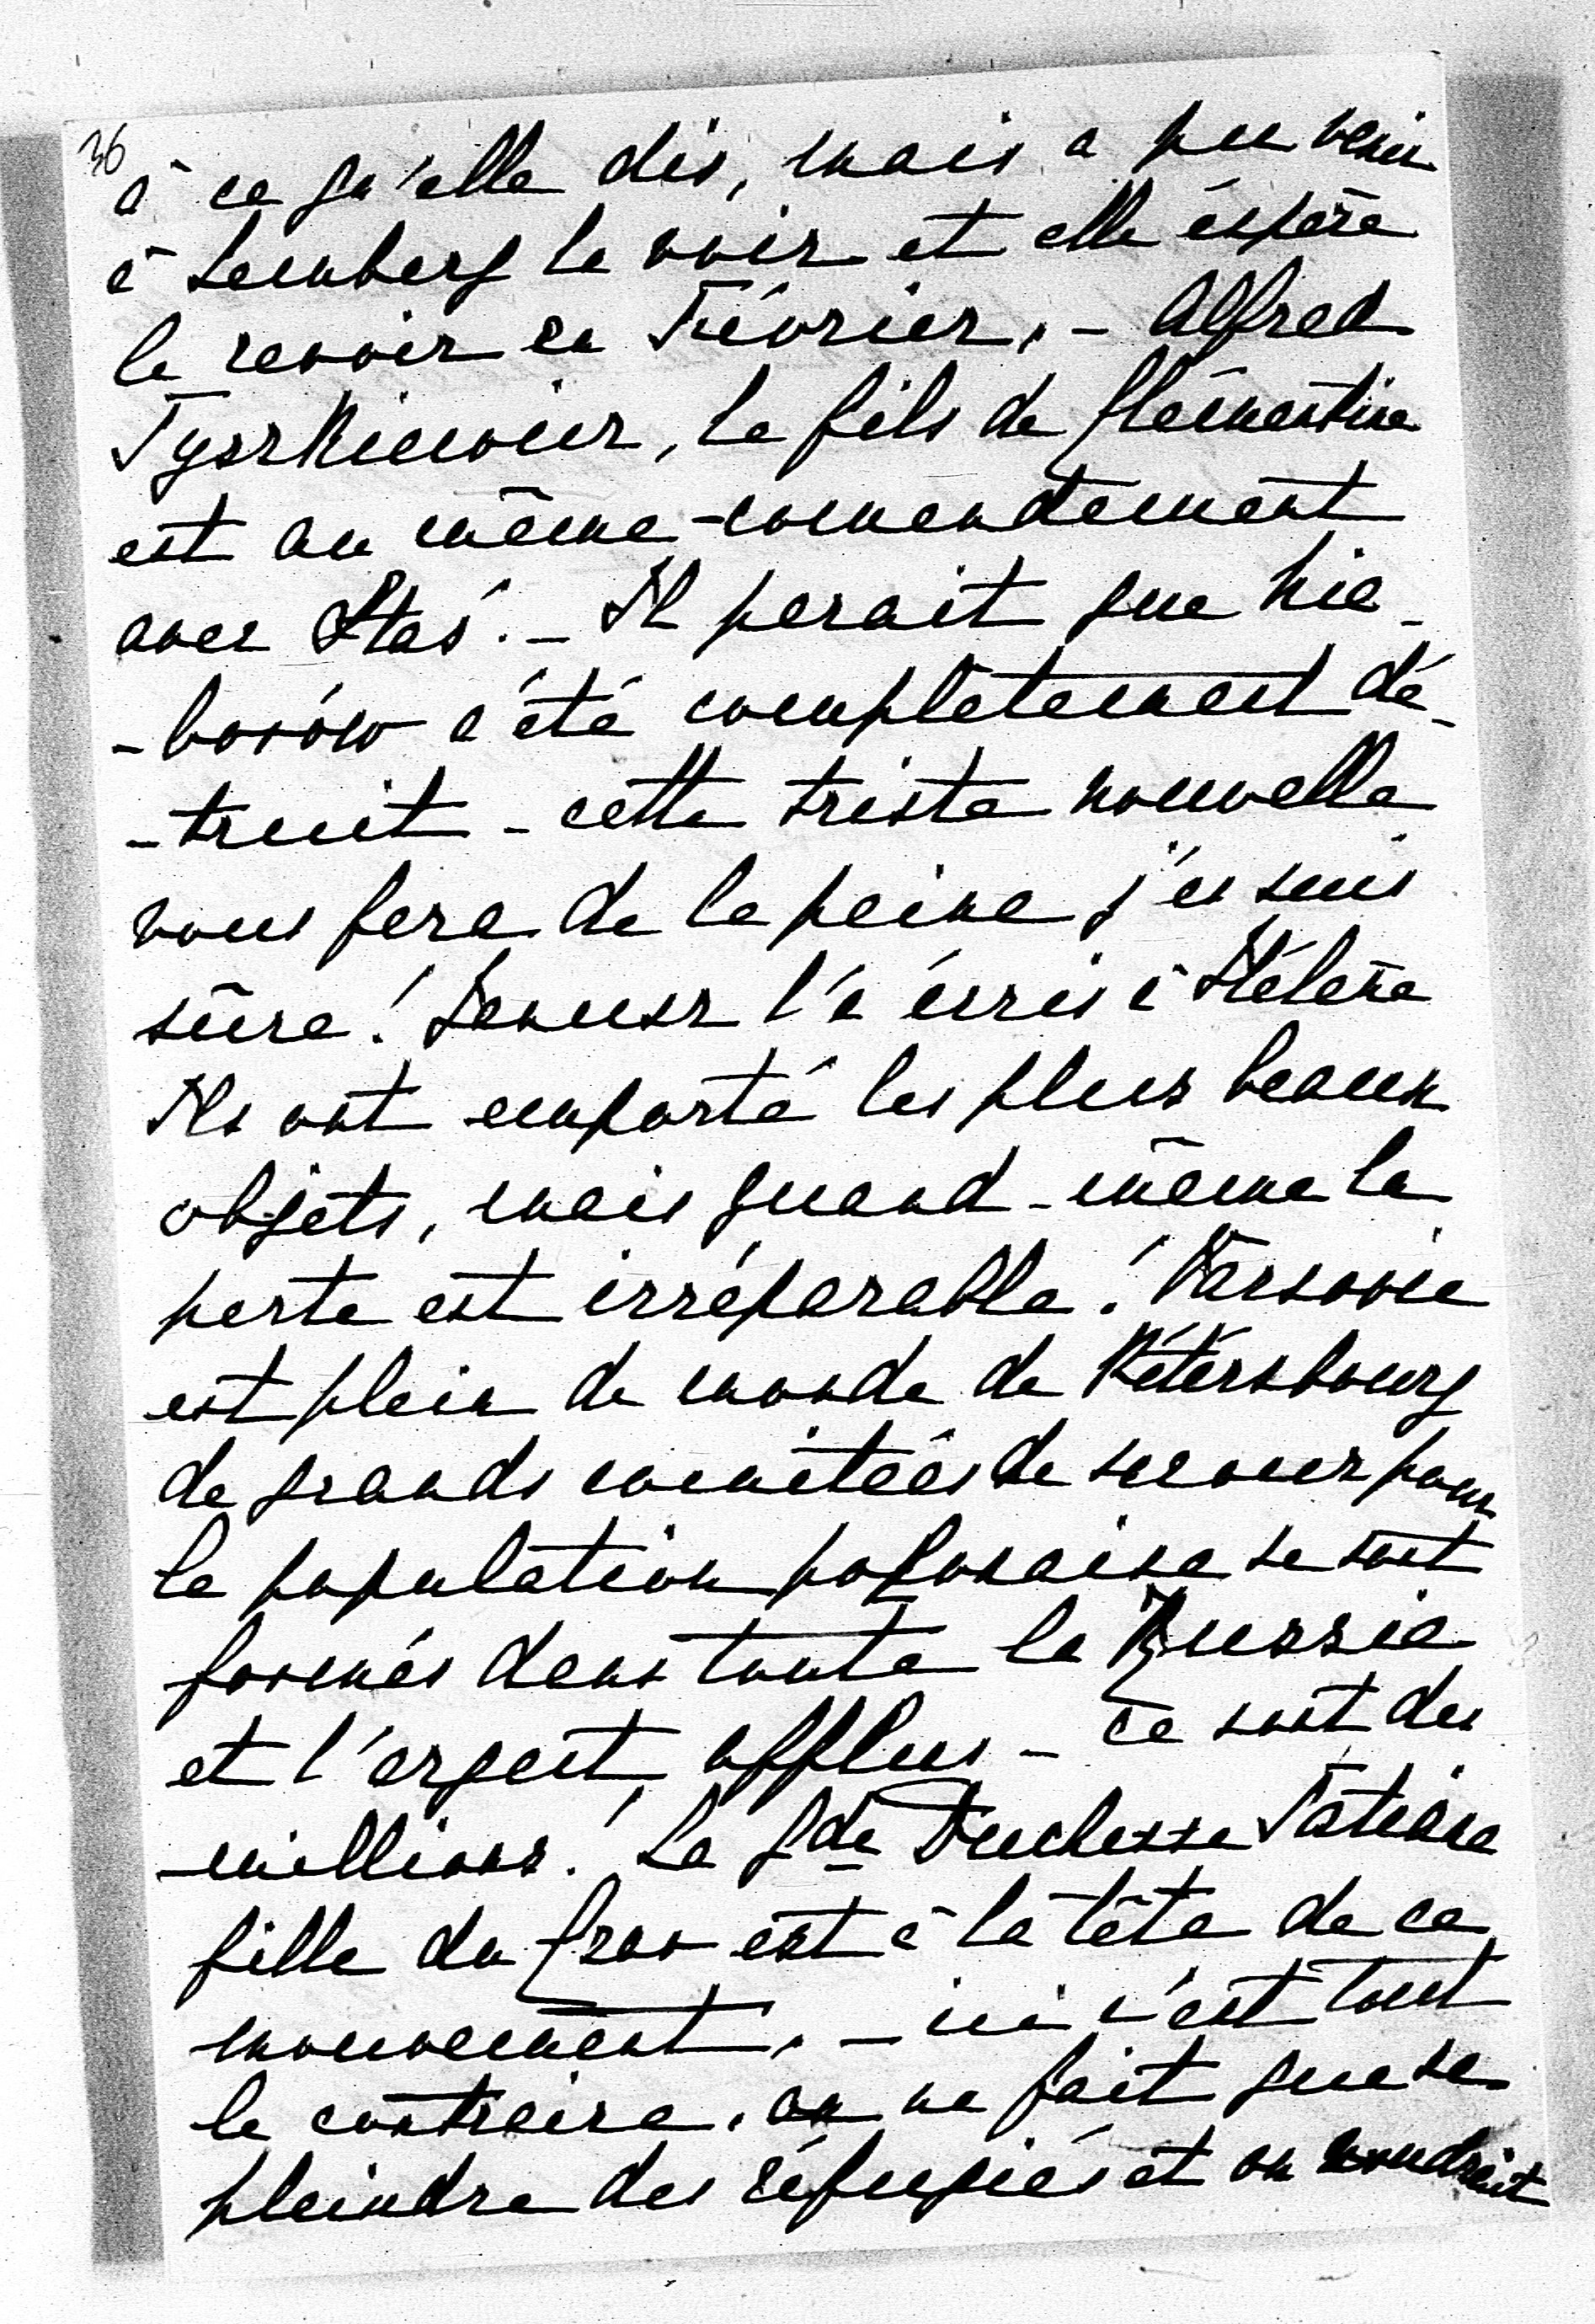 36
à ce qu'elle dis, mais a pu venir
à Lemberg le voir et elle éspère
le revoir en Février. - Alfred
Tyszkiewicz, le fils de Clémentine
est au même - comendement
avec Staś. - Il parait que Nie-
-borów a été complètement dé-
-truit - cette triste nouvelle
vous fera de la peine j'en suis
sûre! Janusz l'a écris à Hélène
Ils ont emporté les plus beaux
objets, mais quand - même la
perte est irréparable! Varsovie
est plein de monde de Pétérsbourg
de grands comitées de secour pour
la population polonaise se sont
formés dans toute la Russie
et l'argent afflus - ce sont des
millions! La Gde Duchesse Tatiana
fille du Czar est à la tête de ce
mouvement. - ici c'est tout
le contraire, on ne fait que se
pleindre des réfugiés et on voudrait